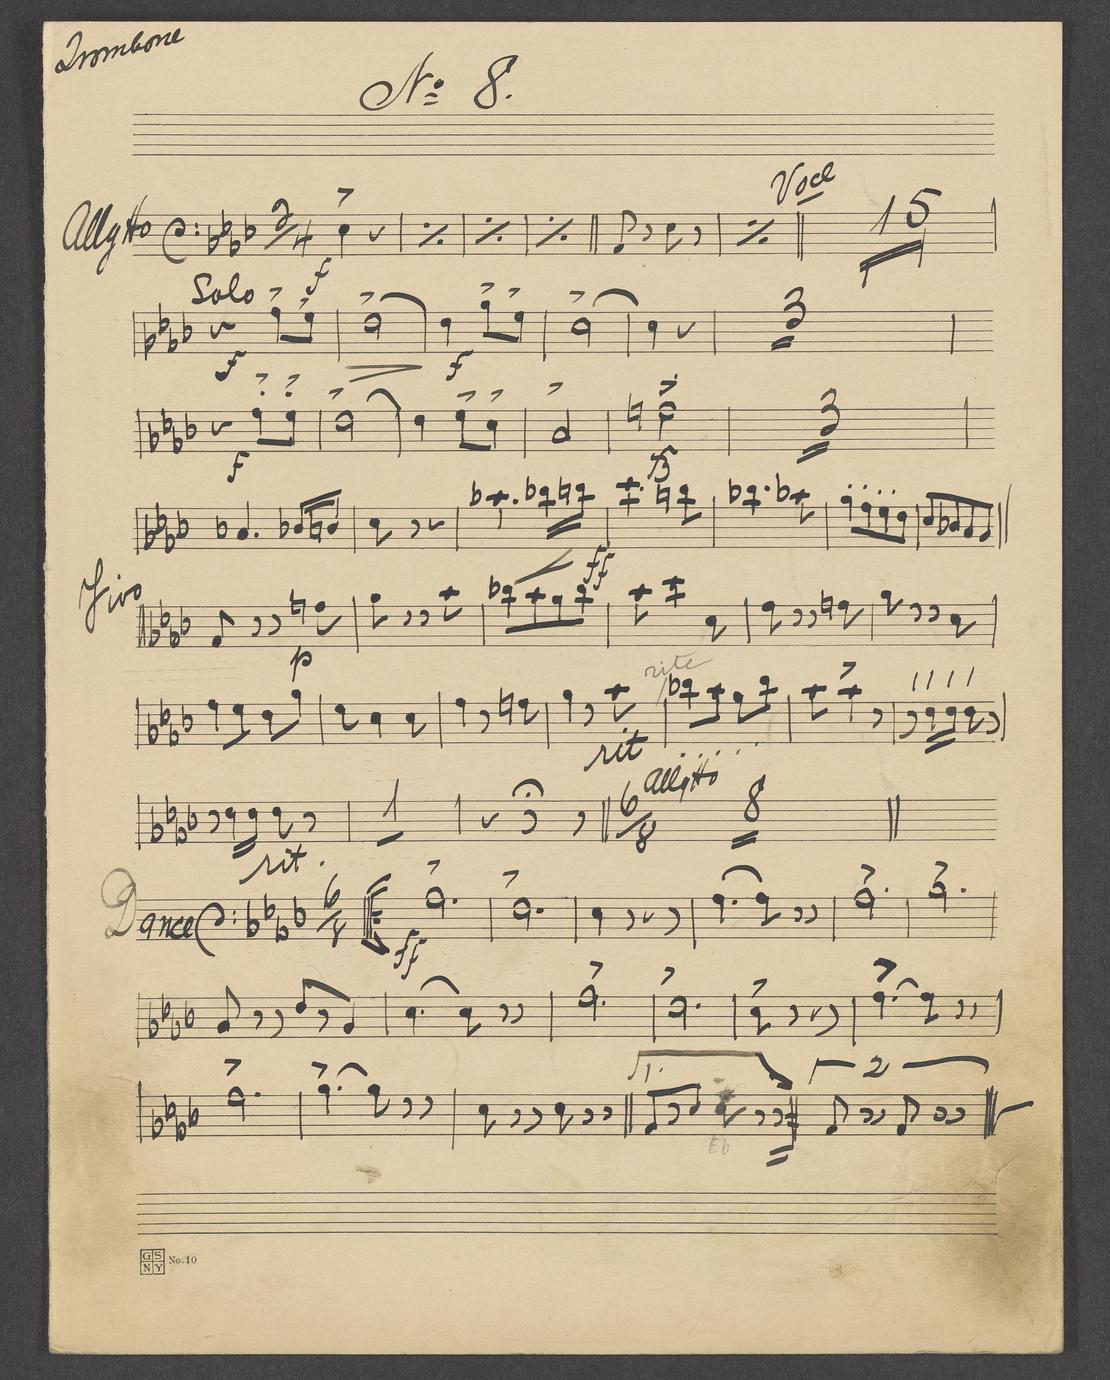 Trombone
No 8.
Voce
Allgtto 2/4 15
f
Solo
3
f f
3
f
ff
Vivo
p
rite
rit
Allgtto
1 6/8 8
rit.
Dance 6/8
ff
1. 2
Eb
GS
NY No.10